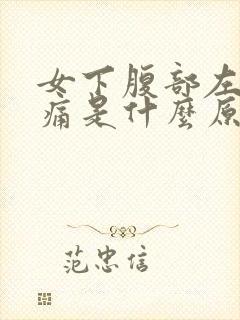 女下腹部左
痛是什麼原
范忠信